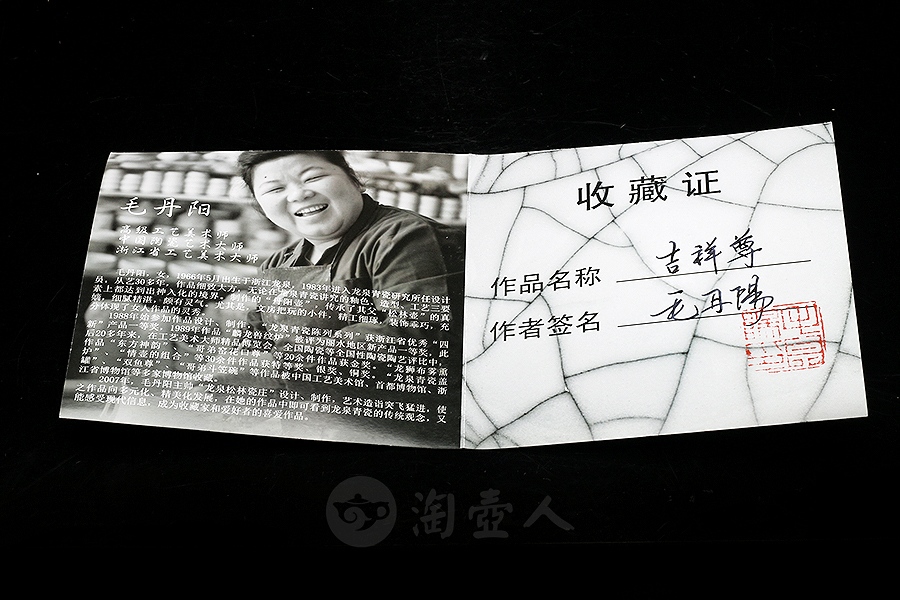 毛丹阳
高级工艺美术师
中国陶瓷艺术大师
浙江省工艺美术大师
毛丹阳，女，1966年5月出生于浙江龙泉，1983年进入龙泉青瓷研究所任设计
员，从艺30多年，作品细致大方，无论在龙泉青瓷讲究的釉色、造型、工艺三要
素上都达到出神入化的境界。制作的“丹阳瓷”，传承了其父“松林壶”的真
髓，细腻精湛，颇有灵气。尤其瓷、文房把玩的小件，精工细琢，装饰乖巧，充
分体现了女人作品的灵秀。
1988年始参加作品设计、制作，“龙泉青瓷陈列系列”获浙江省优秀“四
新”产品一等奖。1989年作品“麟龙兽纹炉”被评为丽水地区新产品一等奖，此
后20多年来，在工艺美术大师精品博览会、全国陶瓷等全国性陶瓷陶艺评比中，
作品“东方神韵”、“哥弟窑花口尊”等20余件作品获金奖，“龙狮布雾熏
炉”、“情壶的组合”等30余件作品获特等奖、银奖、铜奖。“龙泉青瓷盖
罐”、“双鱼尊”、“哥弟斗笠碗”等作品被中国工艺美术馆、首都博物馆、浙
江省博物馆等多家博物馆收藏。
2007年，毛丹阳主帅“龙泉松林瓷庄”设计、制作，艺术造诣突飞猛进，使
之作品向多元化、精美化发展，在她的作品中即可看到龙泉青瓷的传统观念，又
能感受现代信息，成为收藏家和爱好者的喜爱作品。
收藏证
作品名称 吉祥尊
作者签名 毛丹陽
淘壶人